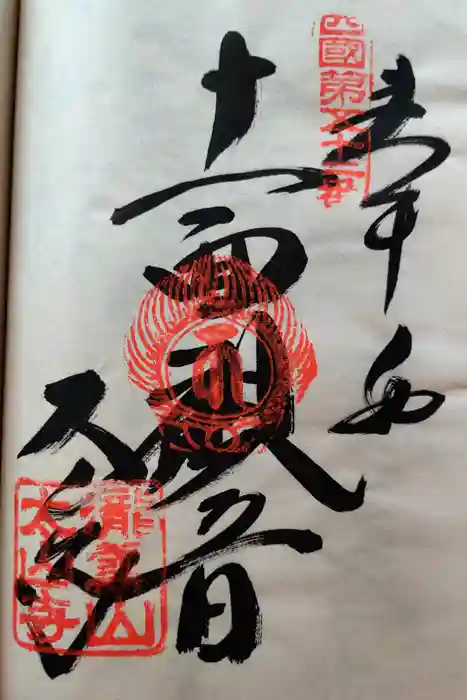 四國第五十二番
奉納
十一面観音
太山寺
瀧雲山
太山寺